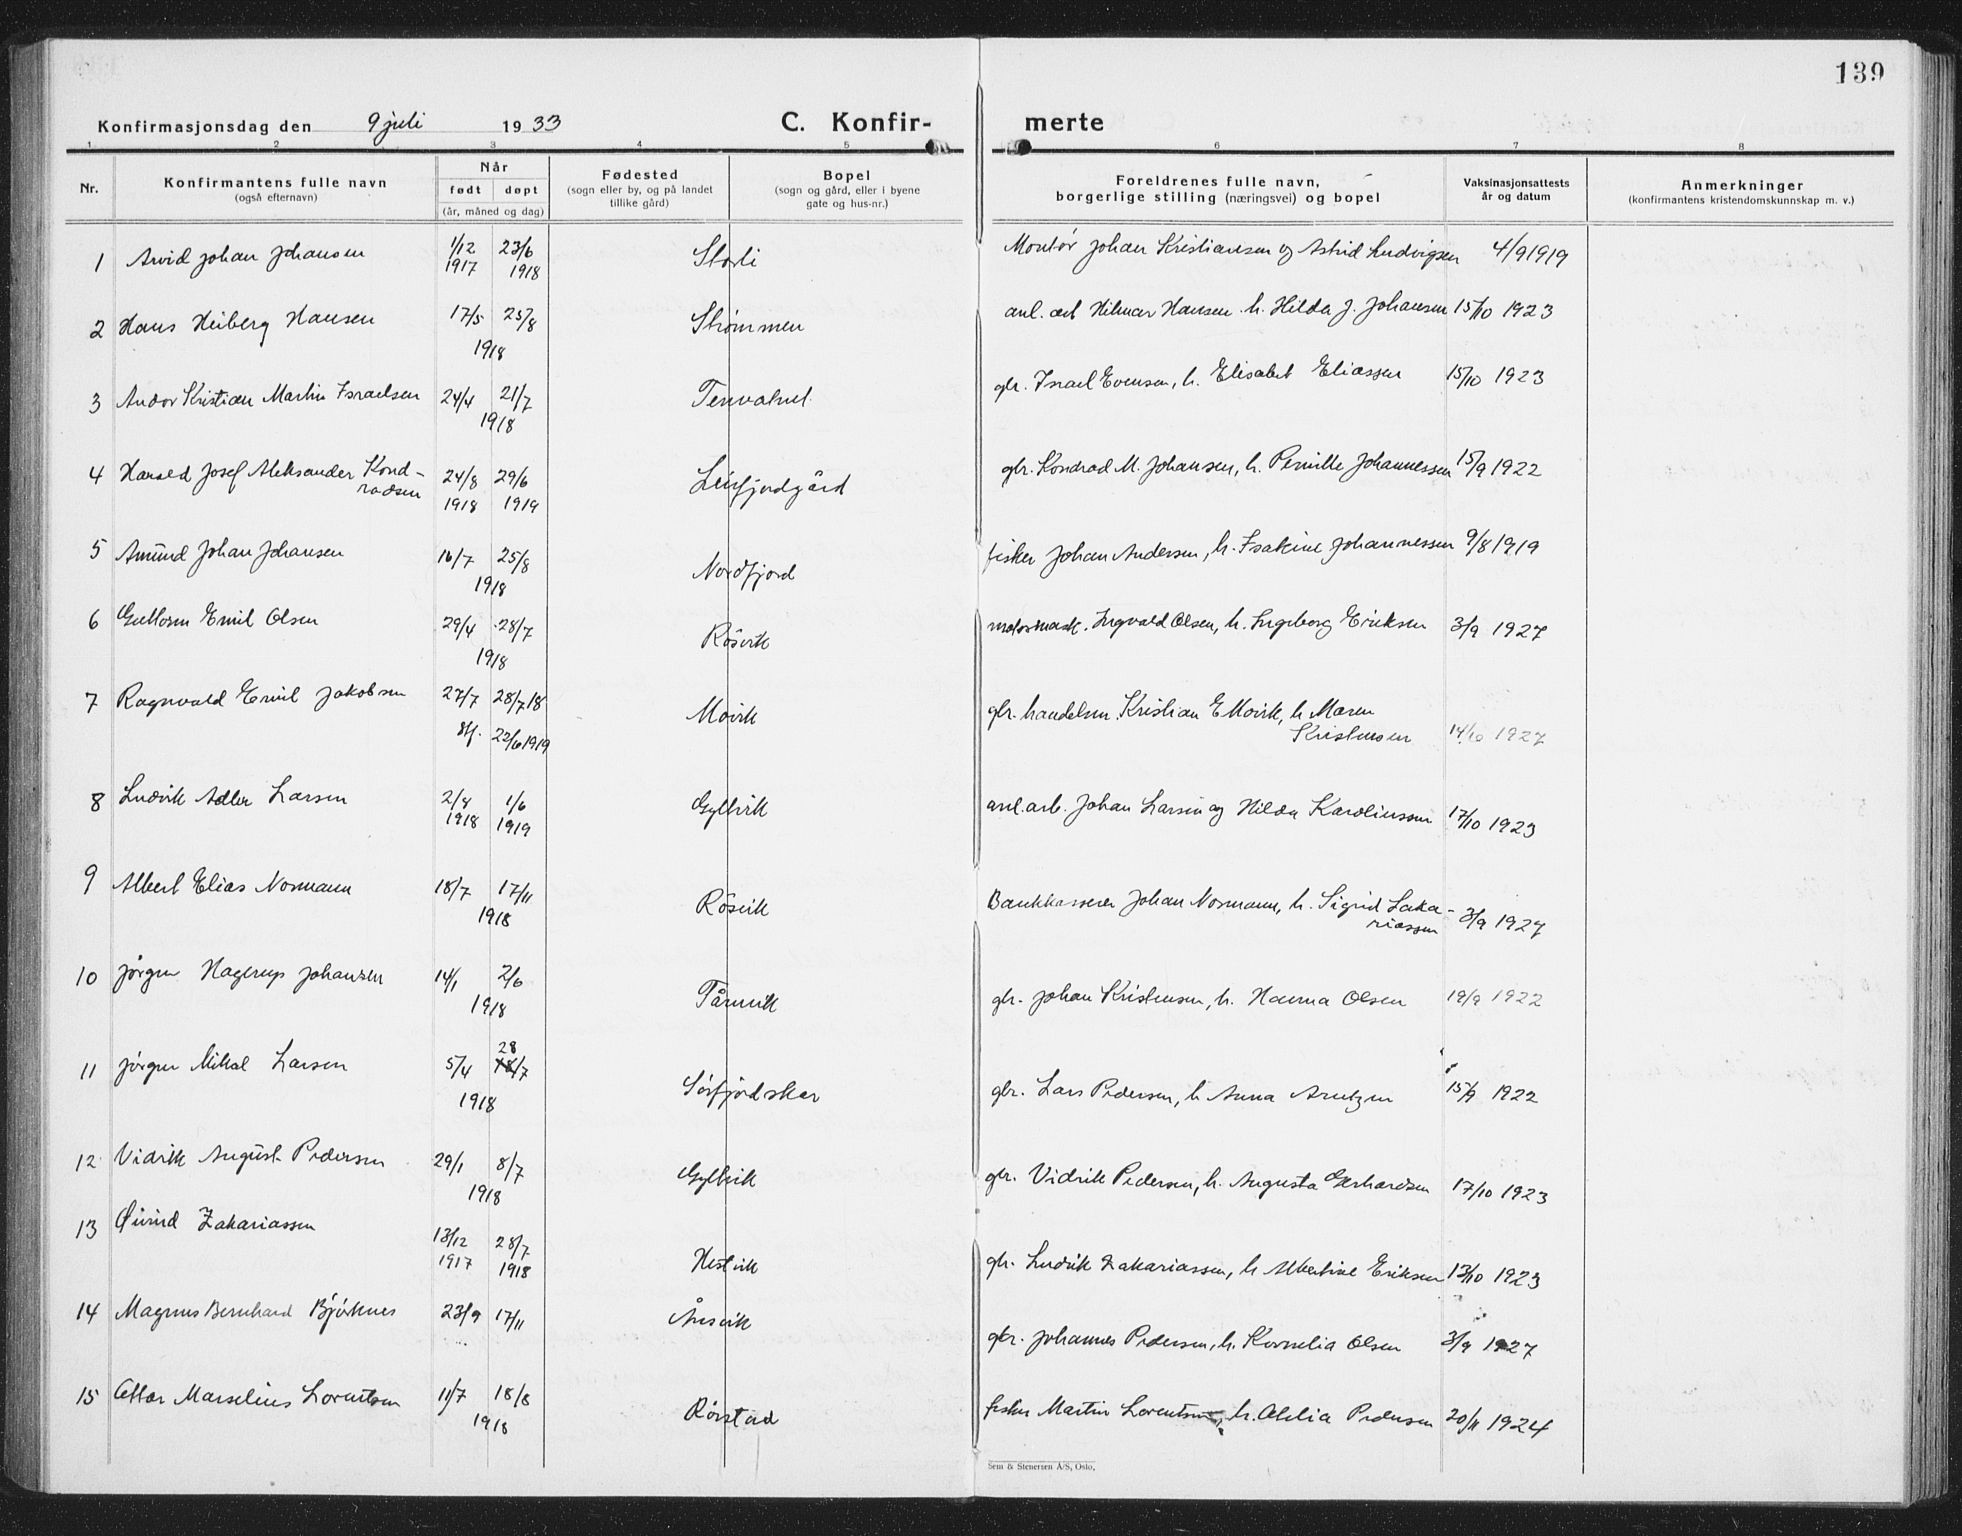 139
Konfirmasjonsdag den 9 juli 1933 C. Konfir- merte
1 2 3 4 5 6 7 8
Nr. Konfirmantens fulle navn (også efternavn) Når født døpt (år, måned og dag) Fødested (sogn eller by, og på landet tillike gård) Bopel (sogn og gård, eller i byene gate og hus-nr.) Foreldrenes fulle navn, borgerlige stilling (næringsvei) og bopel Vaksinasjonsattests år og datum Anmerkninger (konfirmantens kristendomskunnskap m. v.)
1 Arvid Johan Johansen 1/12 1917 23/6 1918 Storli Montør Johan Kristiansen og Astrid Ludvigsen 4/9 1919
2 Hans Heiberg Hansen 17/5 25/8 1918 Strømmen anl. arb Hilmar Hansen h. Hilda J. Johansen 15/10 1923
3 Andor Kristian Martin Israelsen 24/4 21/7 1918 Tennvatnet gbr. Israel Evensen, h. Elisabet Eliassen 15/10 1923
4 Harald Josef Aleksander Kond-
radsen 24/8 1918 29/6 1919 Leirfjordgård gbr. Kondrad M. Johansen, h. Pernille Johannessen 15/9 1922
5 Amund Johan Johansen 16/7 25/8 1918 Nordfjord fisker Johan Andersen, h. Isakine Johannessen 9/8 1919
6 Guttorm Emil Olsen 29/4 28/7 1918 Røsvik motormask. Ingvald Olsen, h. Ingeborg Eriksen 3/9 1927
7 Ragnvald Emil Jakobsen 27/7 28/7 18 Movik gbr. handelsm. Kristian E Movik, h Maren
22/6 1919 Kristensen 14/10 1927
8 Ludvik Adler Larsen 2/8 1918 1/6 1919 Gyltvik anl. arb. Johan Larsen og Hilda Karolinssen 17/10 1923
9 Albert Elias Normann 18/7 17/11 1918 Røsvik Bankkasserer Johan Normann, h. Sigrid Zaka-
riassen 3/9 1927
10 Jørgen Hagerup Johansen 14/1 2/6 1918 Tårnvik gbr. Johan Kristensen, h. Hanna Olsen 19/9 1922
11 Jørgen Mikal Larsen 5/4 28/7 1918 Sørfjordskar gbr. Lars Pedersen, h Anna Arntzen 15/9 1922
12 Vidrik August Pedersen 29/1 8/7 1918 Gyltvik gbr. Vidrik Pedersen, h. Augusta Gerhardsen 17/10 1923
13 Øivind Zakariassen 13/12 1917 28/7 1918 Hestvik gbr. Ludvik Zakariassen, h Albertine Eriksen 13/10 1923
14 Magnus Bernhard Bjørknes 23/9 17/11 Ånsvik gbr. Johannes Pedersen, h. Kornelia Olsen 3/9 1927
15 Ottar Marselius Lorentsen 11/7 18/8 1918 Rørstad fisker Martin Lorentsen, h. Otelia Pedersen 20/11 1924
Sem & Stenersen A/S, Oslo.